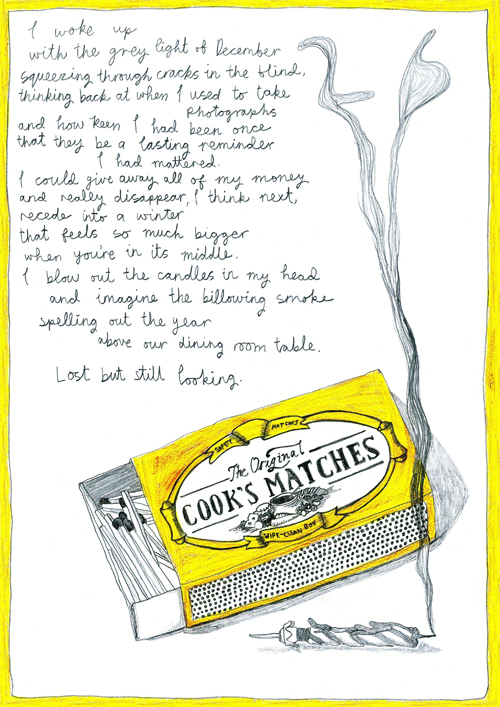 I woke up
with the grey light of December
squeezing through cracks in the blind,
thinking back at when I used to take
photographs
and how keen I had been once
that they be a lasting reminder
I had mattered.
I could give away all of my money
and really disappear, I think next,
recede into a winter
that feels so much bigger
when you're in its middle.
I blow out the candles in my head
and imagine the billowing smoke
spelling out the year
above our dining room table.
Lost but still looking.
SAFETY MATCHES
The Original
COOK'S MATCHES
WIPE-CLEAN BOX